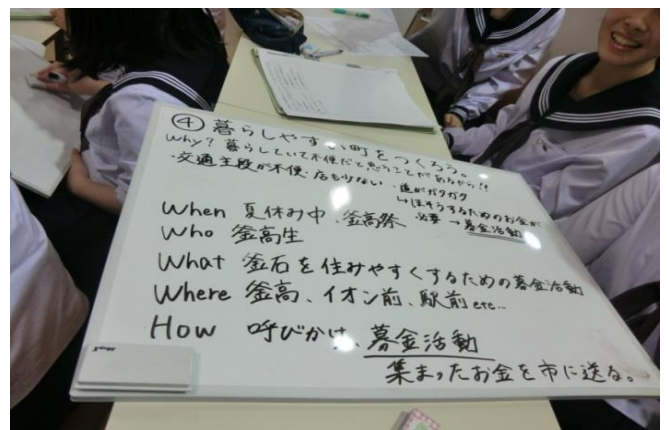 ④ 暮らしやすい町をつくろう。
Why? 暮らしていて不便だと思うことがあるから!!
・交通手段が不便・店も少ない ・道がガタガタ
↳ほそうするためのお金が
必要 → 募金活動
When 夏休み中、釜高祭
Who 釜高生
What 釜石を住みやすくするための募金活動
Where 釜高、イオン前、駅前 etc...
How 呼びかけ、募金活動
集まったお金を市に送る。